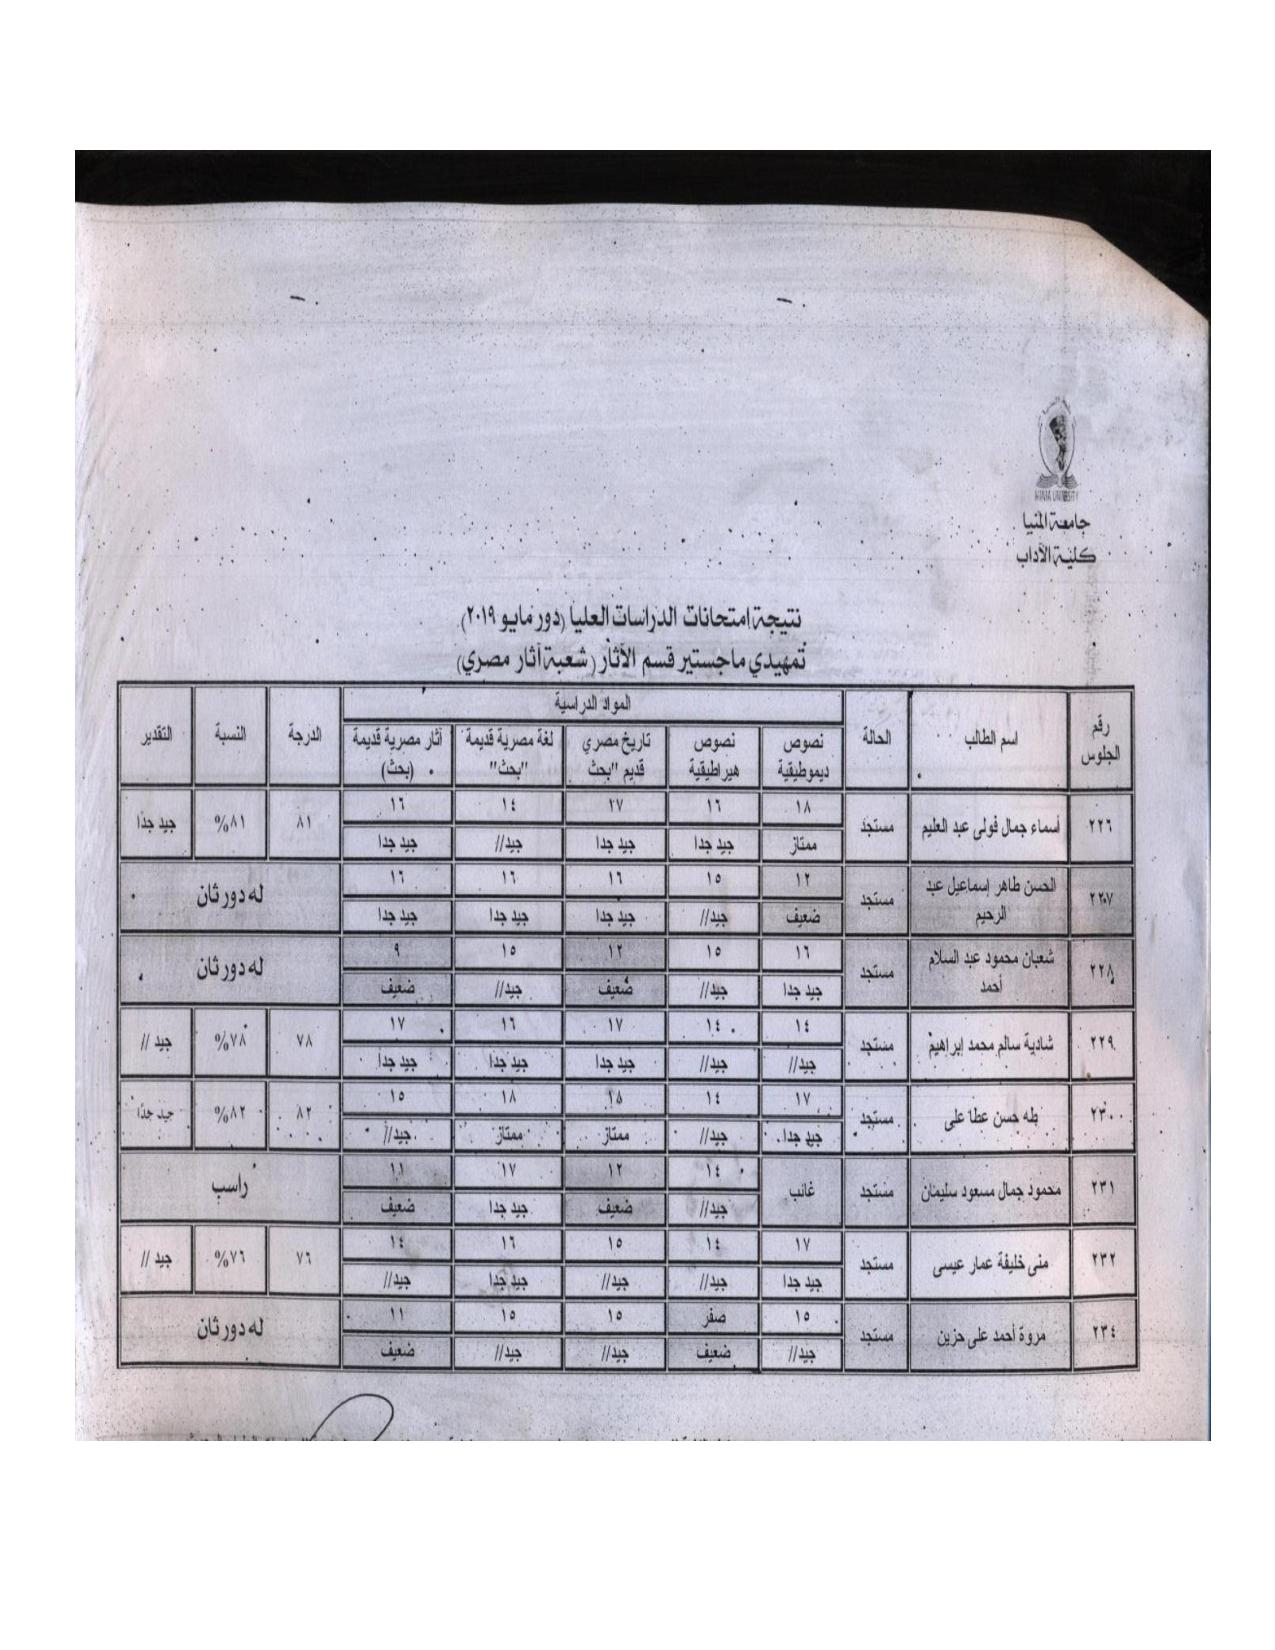 MINIA UNIVERSITY
جامعة المنيا
كلية الآداب
نتيجة امتحانات الدراسات العليا (دور مايو ٢٠١٩)
تمهيدي ماجستير قسم الآثار (شعبة آثار مصري)
رقم الجلوس اسم الطالب الحالة المواد الدراسية الدرجة النسبة التقدير
نصوص ديموطيقية نصوص هيراطيقية تاريخ مصري قديم "بحث لغة مصرية قديمة "بحث" آثار مصرية قديمة (بحث)
٢٢٦ أسماء جمال فولى عبد العليم مستجد ١٨ ١٦ ٢٧ ١٤ ١٦ ٨١ ٨١% جيد جدًا
ممتاز جيد جدا جيد جدا جيد// جيد جدا
٢٢٧ الحسن طاهر إسماعيل عبد الرحيم مستجد ١٢ ١٥ ١٦ ١٦ ١٦ له دور ثان
ضعيف جيد// جيد جدا جيد جدا جيد جدا
٢٢٨ شعبان محمود عبد السلام أحمد مستجد ١٦ ١٥ ١٢ ١٥ ٩ له دور ثان
جيد جدا جيد// ضعيف جيد// ضعيف
٢٢٩ شادية سالم محمد إبراهيم مستجد ١٤ ١٤ ١٧ ١٦ ١٧ ٧٨ ٧٨% جيد //
جيد// جيد// جيد جدا جيد جدا جيد جدا
٢٣٠ طه حسن عطا على مستجد ١٧ ١٤ ١٨ ١٨ ١٥ ٨٢ ٨٢% جيد جدًا
جيد جدا جيد// ممتاز ممتاز جيد//
٢٣١ محمود جمال مسعود سليمان مستجد غائب ١٤ ١٢ ١٧ ١١ راسب
جيد// ضعيف جيد جدا ضعيف
٢٣٢ منى خليفة عمار عيسى مستجد ١٧ ١٤ ١٥ ١٦ ١٤ ٧٦ ٧٦% جيد //
جيد جدا جيد// جيد// جيد جدا جيد//
٢٣٤ مروة أحمد على حزين مستجد ١٥ صفر ١٥ ١٥ ١١ له دور ثان
جيد// ضعيف جيد// جيد// ضعيف